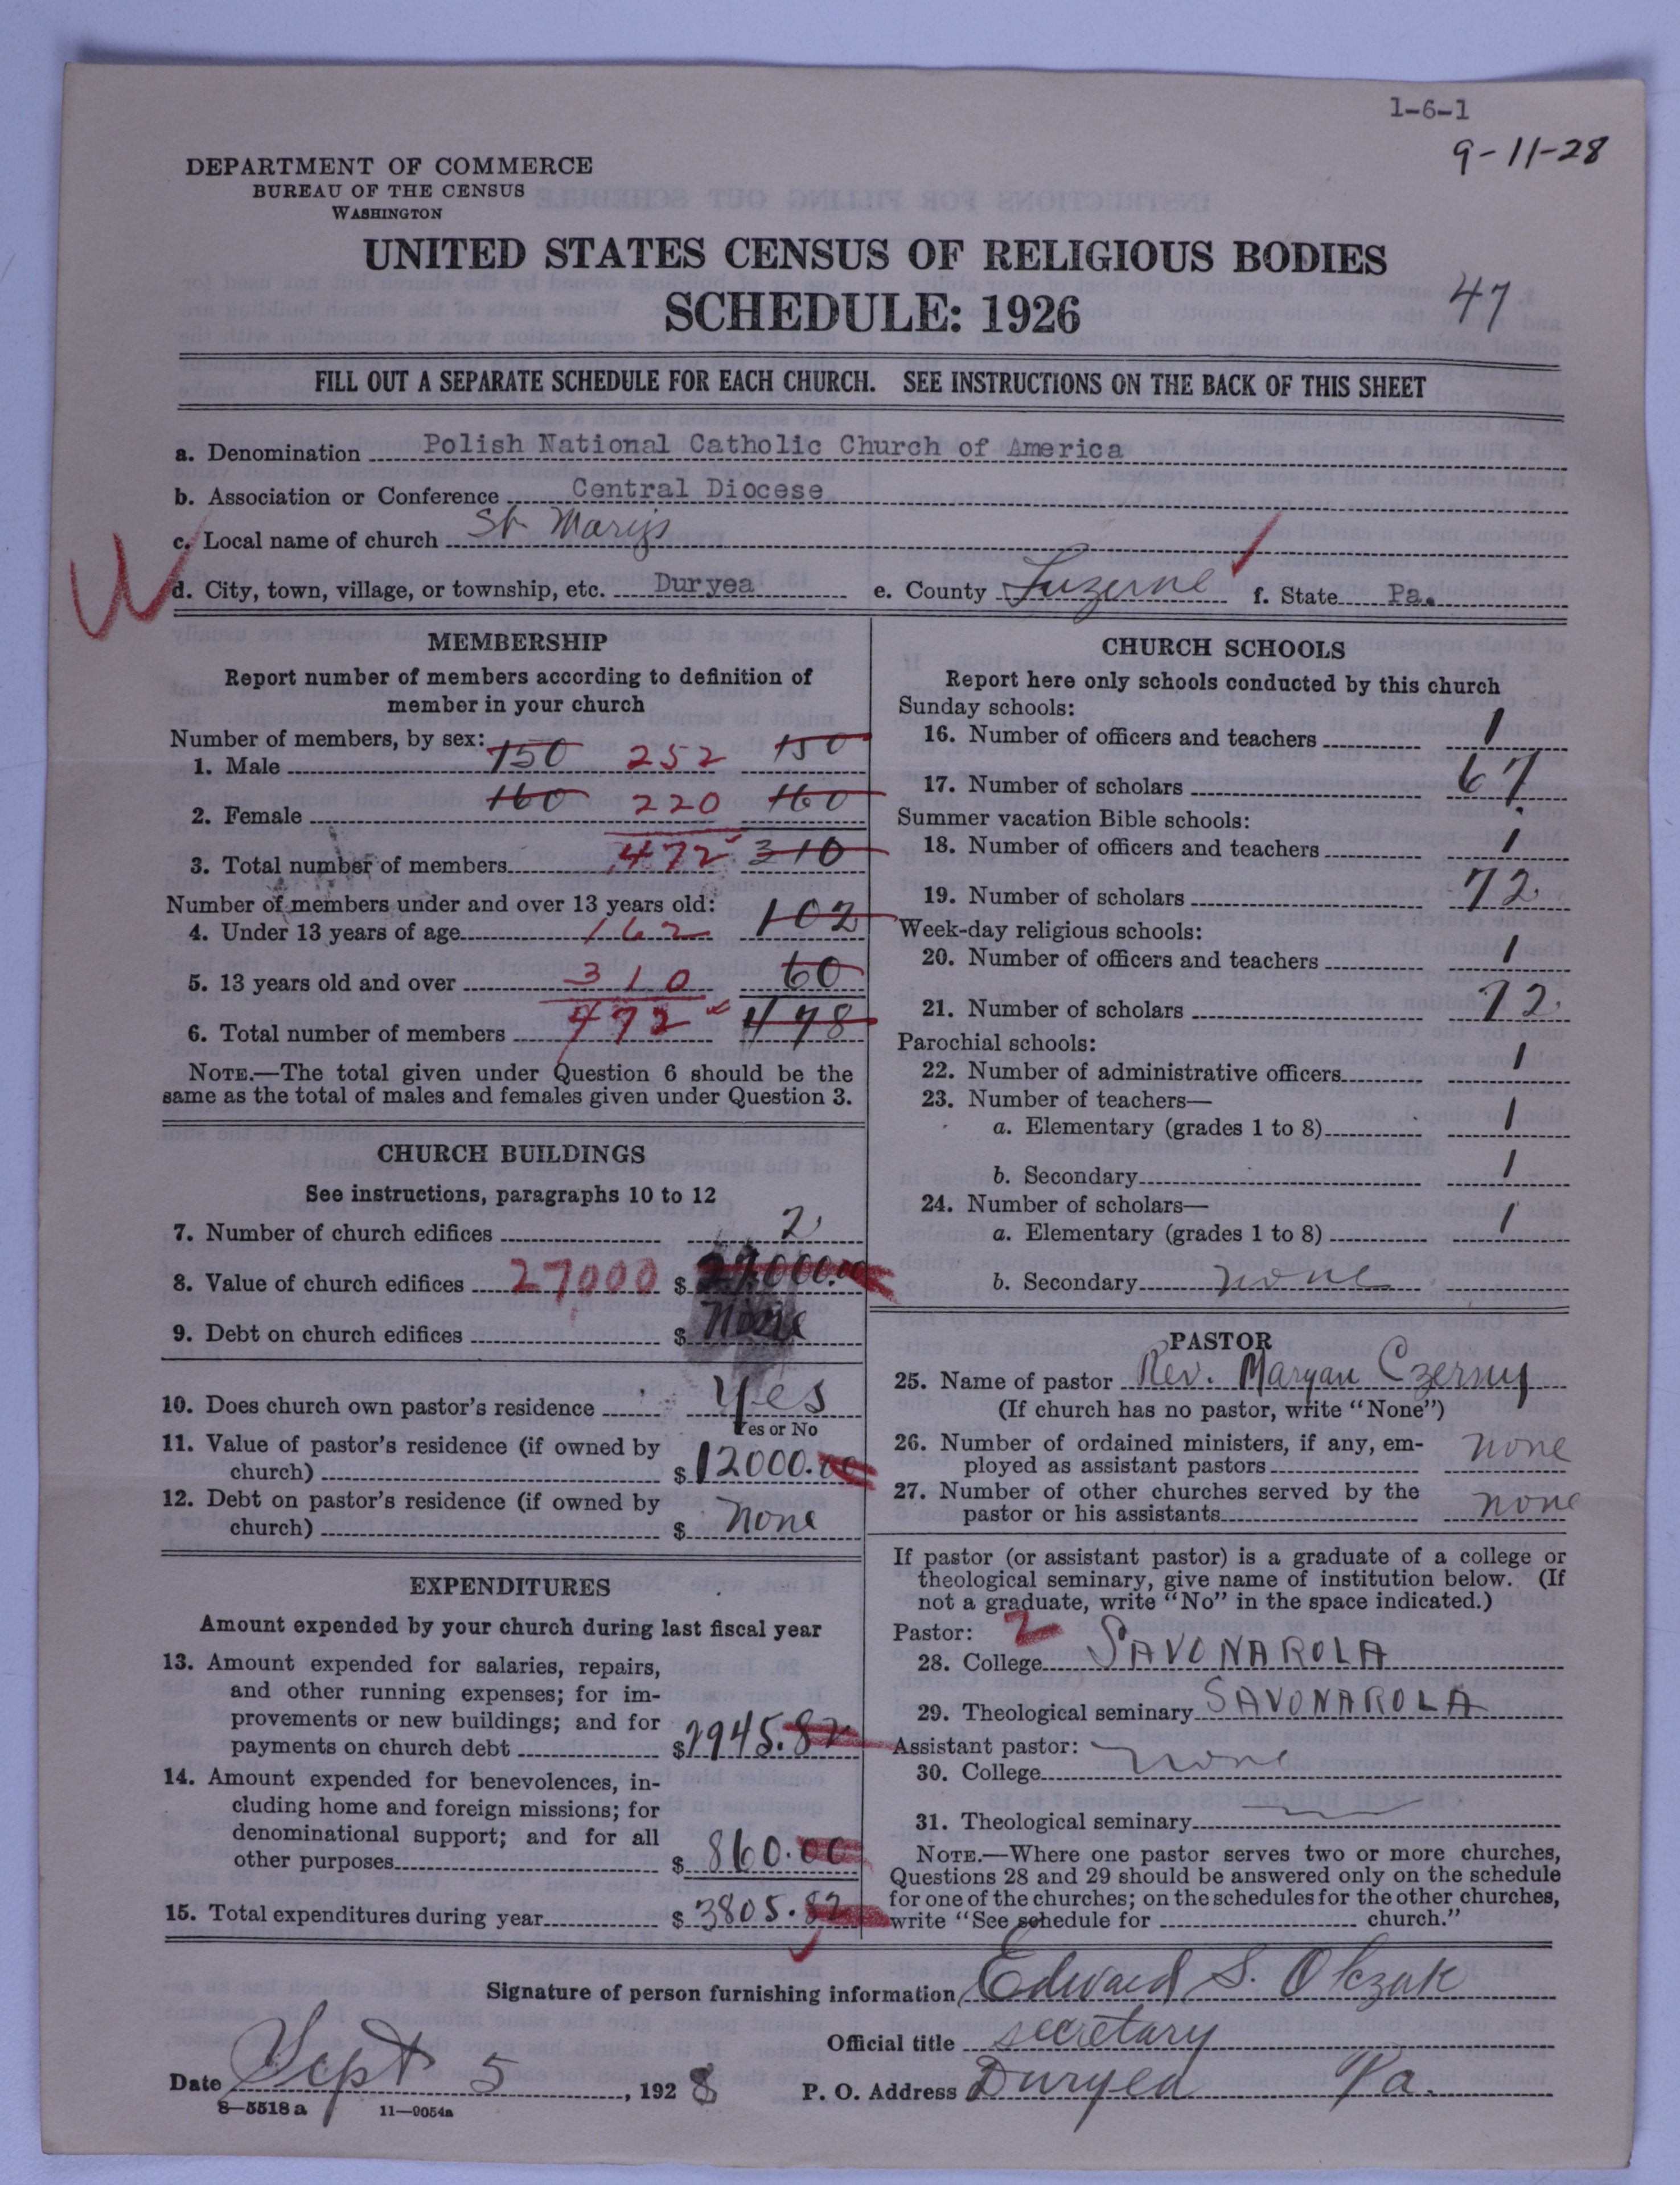 1-6-1
9-11-28
DEPARTMENT OF COMMERCE
BUREAU OF THE CENSUS
WASHINGTON
UNITED STATES CENSUS OF RELIGIOUS BODIES
SCHEDULE: 1926
47
FILL OUT A SEPARATE SCHEDULE FOR EACH CHURCH. SEE INSTRUCTIONS ON THE BACK OF THIS SHEET
a. Denomination Polish National Catholic Church of America
b. Association or Conference Central Diocese
c. Local name of church St Marys
d. City, town, village, or township, etc. Duryea e. County Luzerne f. State Pa.
MEMBERSHIP
Report number of members according to definition of
member in your church
Number of members, by sex:
1. Male 150 252 150
2. Female 160 220 160
3. Total number of members 472 310
Number of members under and over 13 years old:
4. Under 13 years of age 162 102
5. 13 years old and over 310 60
6. Total number of members 472 478
NOTE.—The total given under Question 6 should be the
same as the total of males and females given under Question 3.
CHURCH BUILDINGS
See instructions, paragraphs 10 to 12
7. Number of church edifices 2
8. Value of church edifices 27000 $ 27000.00
9. Debt on church edifices $ None
10. Does church own pastor's residence Yes
Yes or No
11. Value of pastor's residence (if owned by
church) $ 12000.00
12. Debt on pastor's residence (if owned by
church) $ none
EXPENDITURES
Amount expended by your church during last fiscal year
13. Amount expended for salaries, repairs,
and other running expenses; for im-
provements or new buildings; and for
payments on church debt $ 2945.82
14. Amount expended for benevolences, in-
cluding home and foreign missions; for
denominational support; and for all
other purposes $ 860.00
15. Total expenditures during year $ 3805.82
CHURCH SCHOOLS
Report here only schools conducted by this church
Sunday schools:
16. Number of officers and teachers 1
17. Number of scholars 67
Summer vacation Bible schools:
18. Number of officers and teachers 1
19. Number of scholars 72
Week-day religious schools:
20. Number of officers and teachers 1
21. Number of scholars 72
Parochial schools:
22. Number of administrative officers 1
23. Number of teachers—
a. Elementary (grades 1 to 8) 1
b. Secondary 1
24. Number of scholars—
a. Elementary (grades 1 to 8) 1
b. Secondary none
PASTOR
25. Name of pastor Rev. Maryan Czerny
(If church has no pastor, write "None")
26. Number of ordained ministers, if any, em-
ployed as assistant pastors none
27. Number of other churches served by the
pastor or his assistants none
If pastor (or assistant pastor) is a graduate of a college or
theological seminary, give name of institution below. (If
not a graduate, write "No" in the space indicated.)
Pastor: 2
28. College SAVONAROLA
29. Theological seminary SAVONAROLA
Assistant pastor:
30. College none
31. Theological seminary
NOTE.—Where one pastor serves two or more churches,
Questions 28 and 29 should be answered only on the schedule
for one of the churches; on the schedules for the other churches,
write "See schedule for church."
Signature of person furnishing information Edward S. Olczak
Official title secretary
Date Sept 5, 1928 P. O. Address Duryea Pa.
8—5518 a 11—9054a